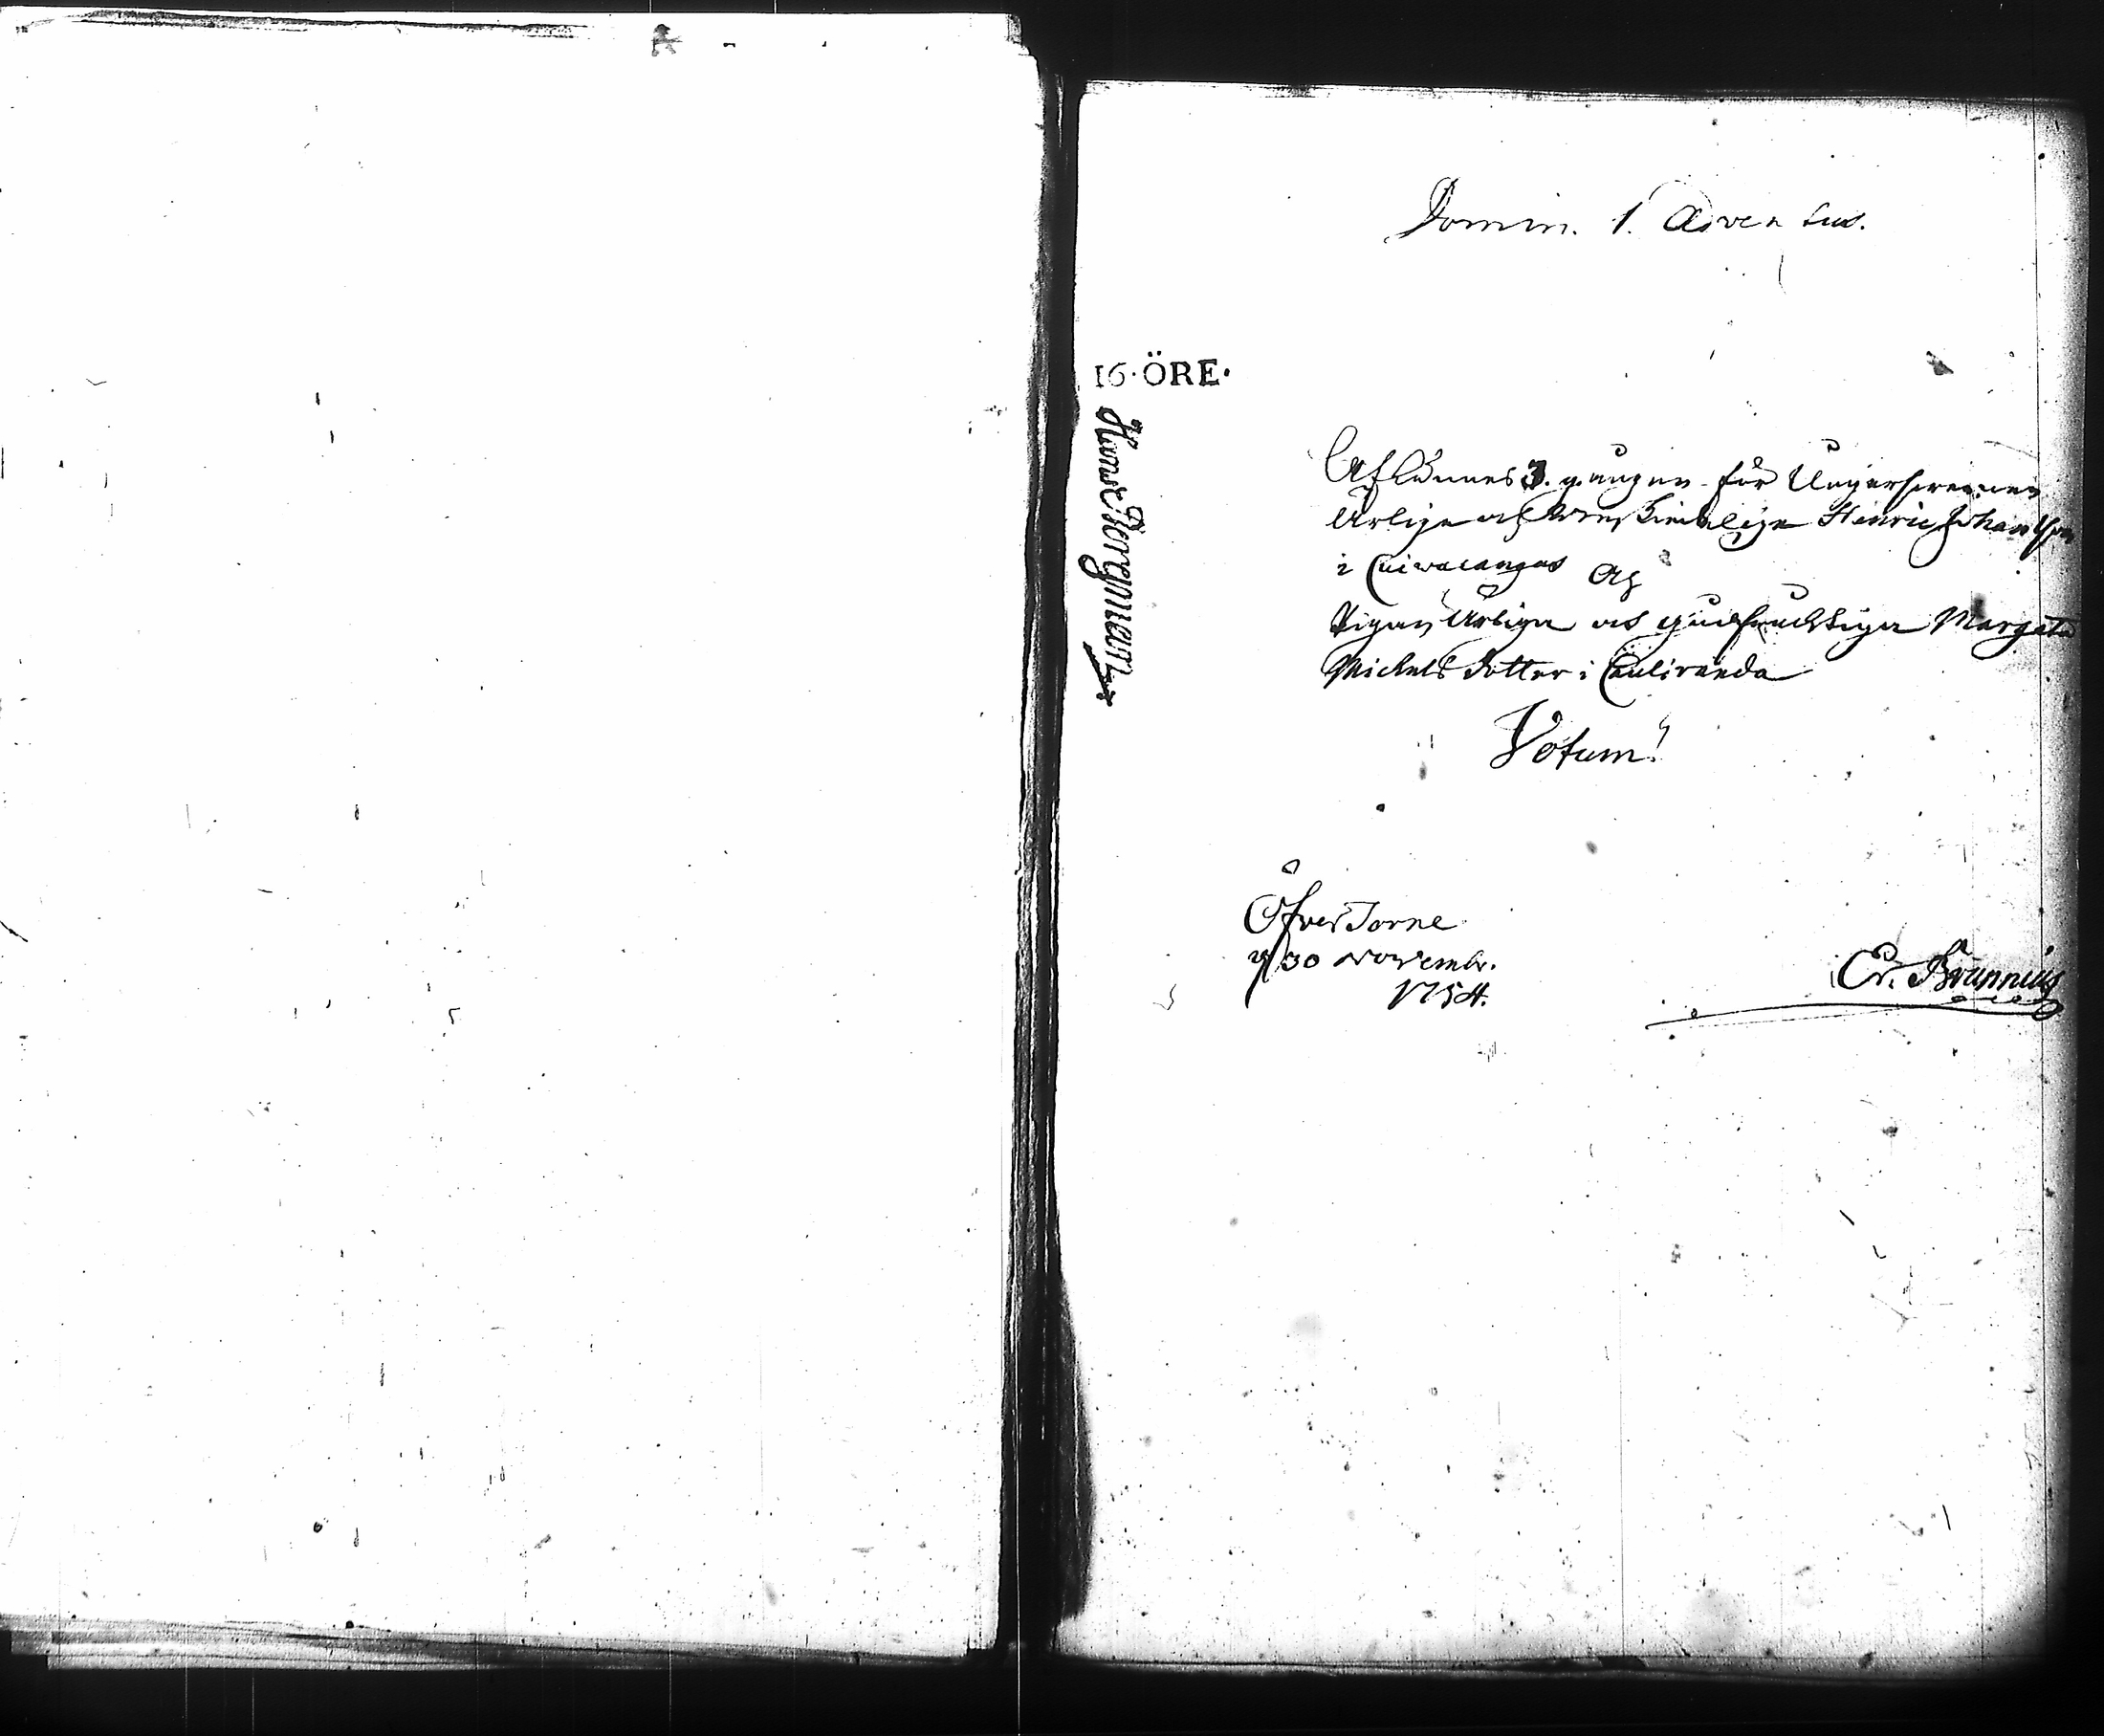 Domin. 1. Adventus.
16·ÖRE·
Aflyses 3. gången för Ungersvennen
Ärlige och Beskiedelige Henric Johansson
i Cuiwacangas och
Pigan Ärliga och gudfruchtiga Margeta
Michelsdotter i Cauliranda
Votum!
Öfver Torne
d 30 Novembr.
1754.
Er. Brunnius